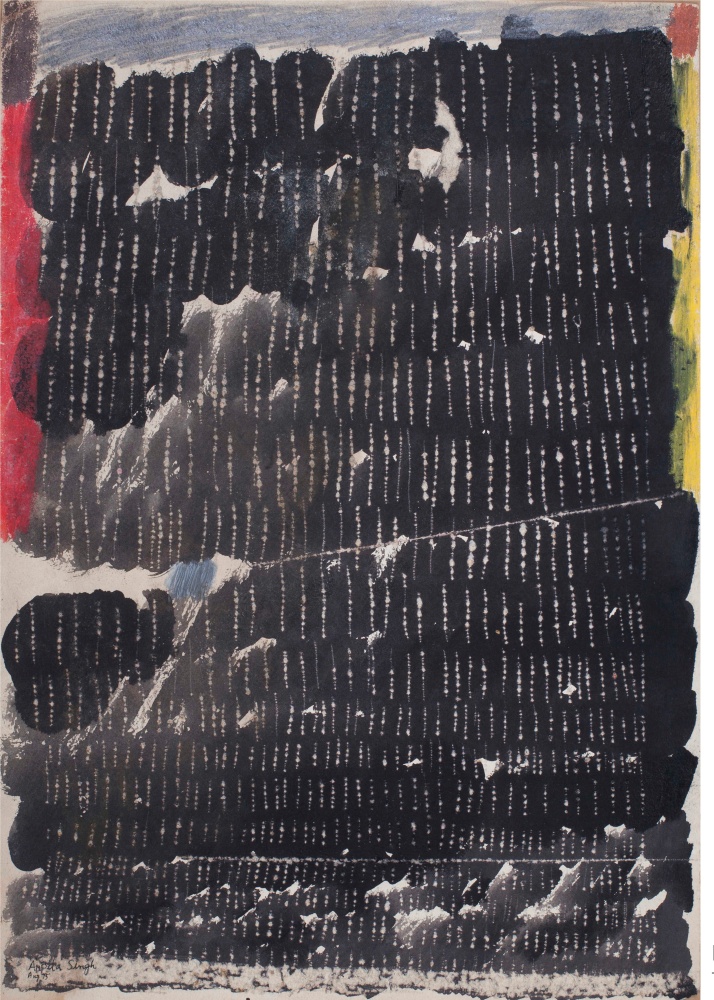 Arpita Singh
Aug 75